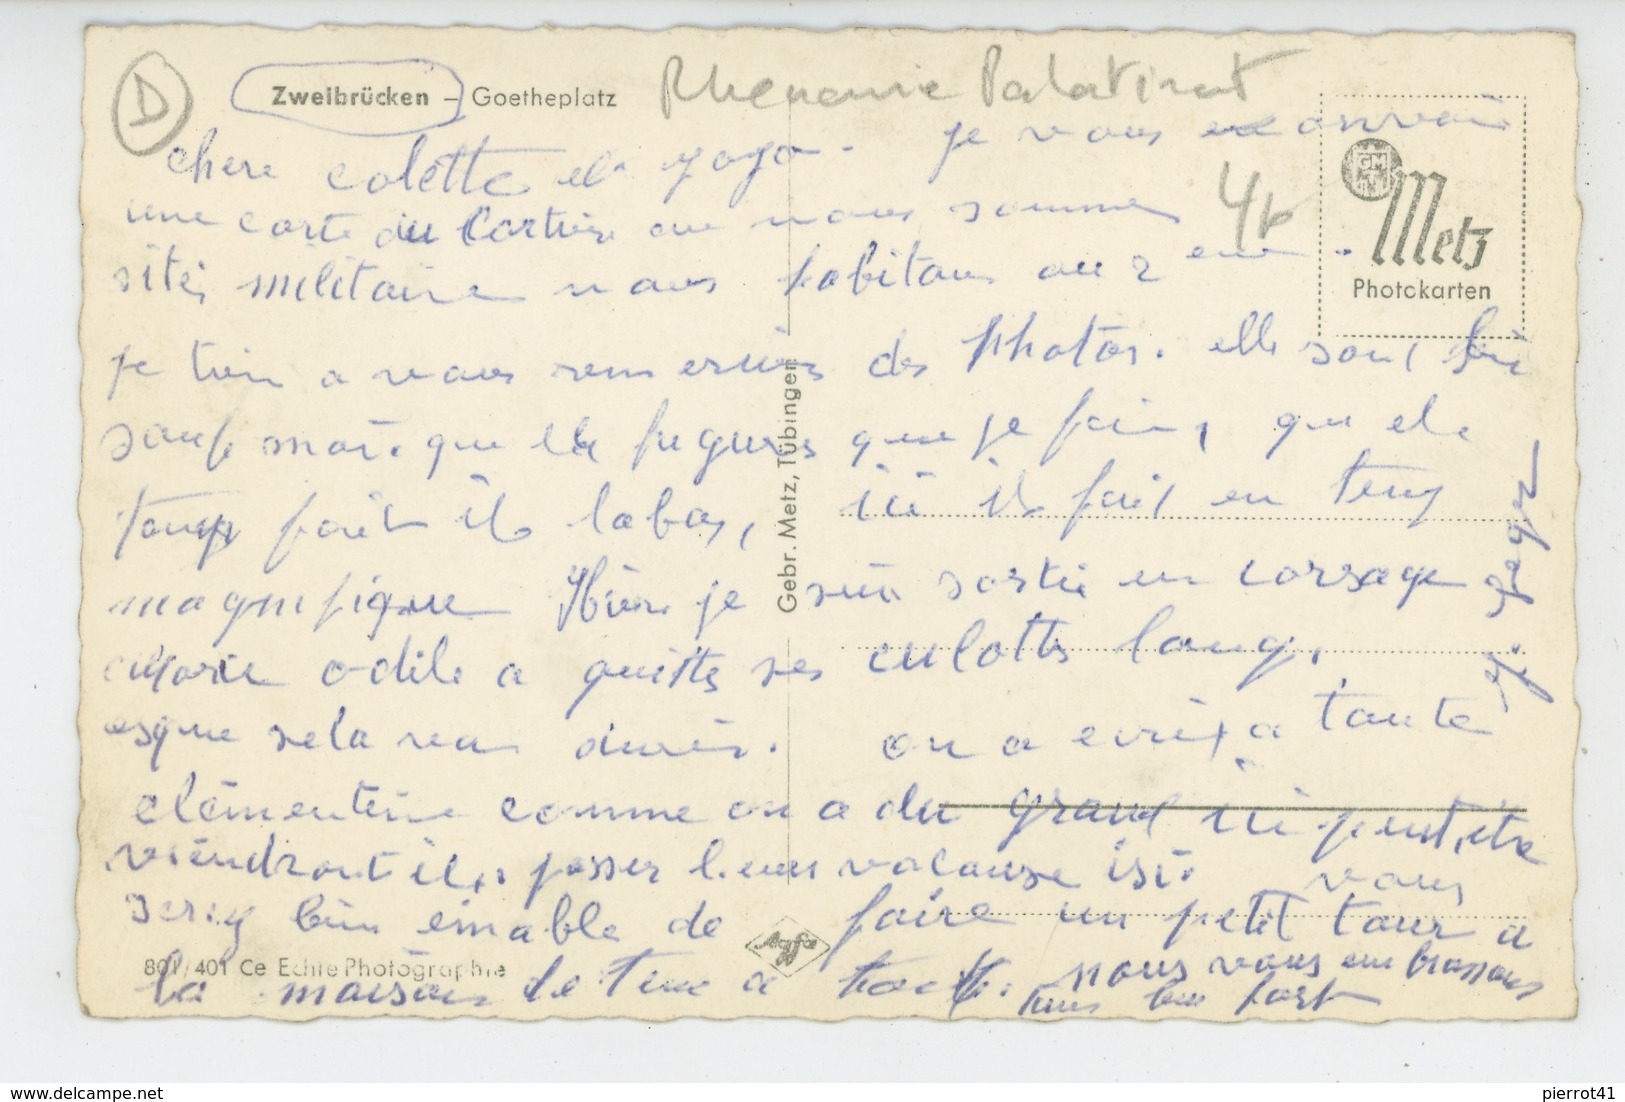 D
Zweibrücken – Goetheplatz
Rhenanie Palatinat
chere colette et yoyo. je vous
4p
une carte du Cartier ou nous sommes
sités militaire nous habitons au 2 eme.
Metz
Photokarten
je tien a vous des Photos. elle sont
sauf moi. que les figures que je fais, quel
temps fait il labas, ici il fait un temp
magnifique Hier je suis sortie en corsage
Marie odile a quitte ses culottes longs,
esque sela vea durer. on a ecrit a tante
clementine comme on a du grand ici peut etre
viendront ils passer leurs vacance isi. vous
serez bien eimable de faire un petit tour a
la maison de tems a tautre. nous vous enbrassons
tous bien fort
Gebr. Metz, Tübingen
Agfa
801/401 Ce Echte Photographie
www.delcampe.net
pierrot41